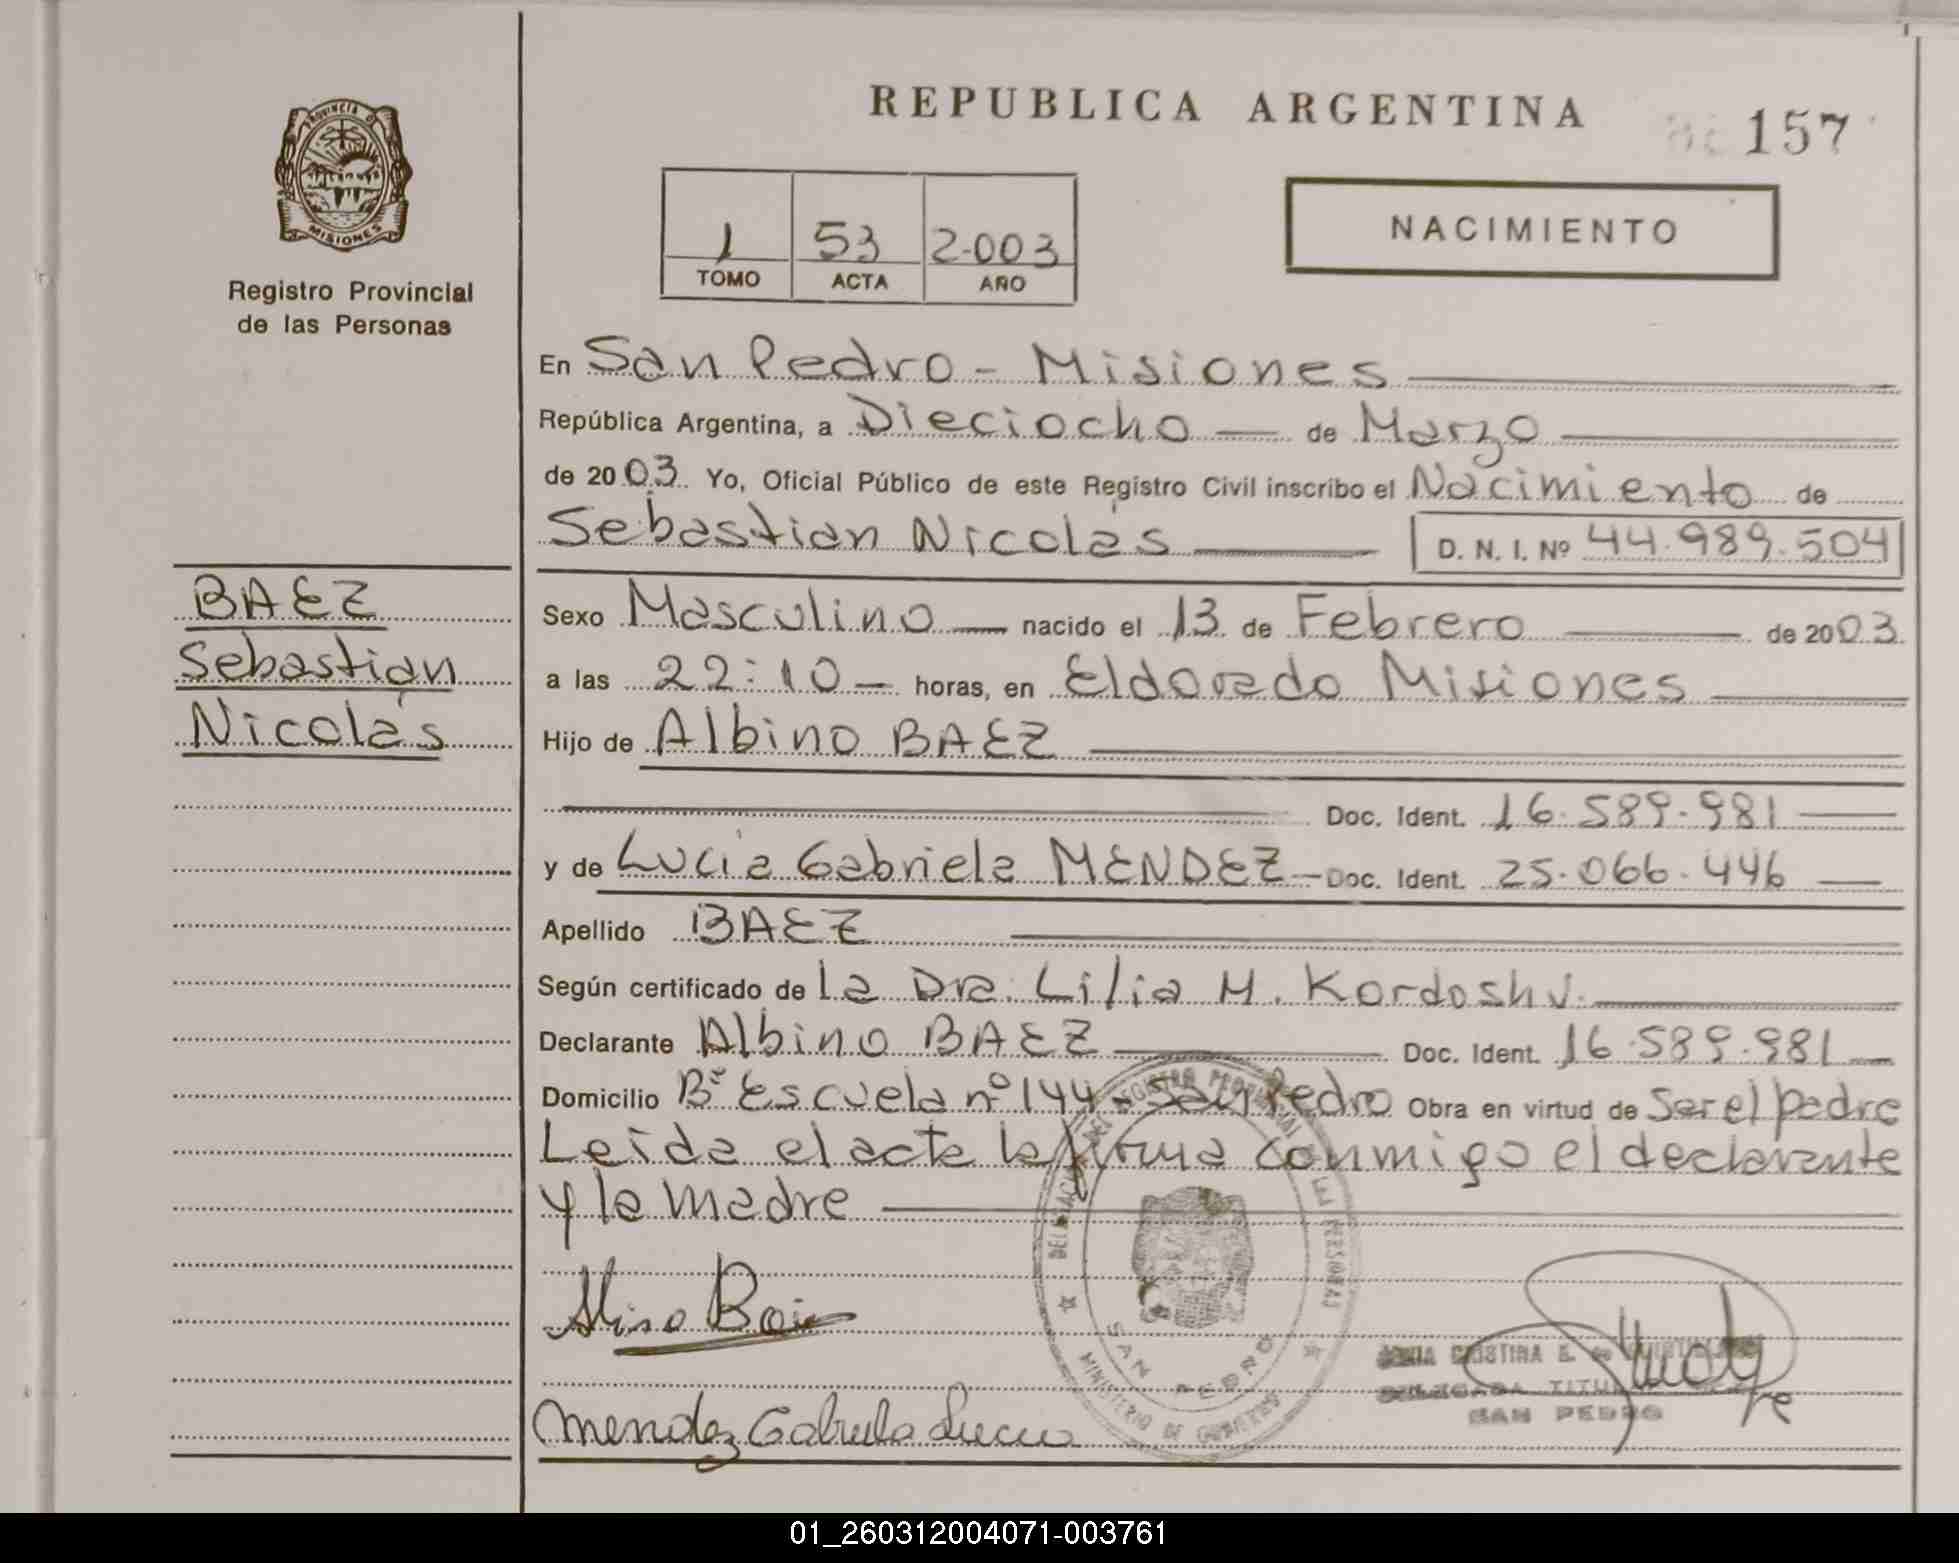 REPUBLICA ARGENTINA
157
PROVINCIA D
MISIONES
Registro Provincial
de las Personas
1 53 2.003
TOMO ACTA AÑO
NACIMIENTO
En San Pedro - Misiones
República Argentina, a Dieciocho de Marzo
de 2003. Yo, Oficial Público de este Registro Civil inscribo el Nacimiento de
Sebastian Nicolás D. N. I. Nº 44.989.504
BAEZ
Sebastian
Nicolás
Sexo Masculino nacido el 13 de Febrero de 2003.
a las 22:10 horas, en Eldorado Misiones
Hijo de Albino BAEZ
Doc. Ident. 16.589.981
y de Lucía Gabriela MENDEZ Doc. Ident. 25.066.446
Apellido BAEZ
Según certificado de la Dra. Lilia M. Kordoshv.
Declarante Albino BAEZ Doc. Ident. 16.589.981
Domicilio Bº Escuela nº 144 - San Pedro Obra en virtud de Ser el padre
Leída el acta la firma conmigo el declarante
y la madre
DELEGACION DEL REGISTRO PROVINCIAL DE LAS PERSONAS
SAN PEDRO
MINISTERIO DE GOBIERNO
CRISTINA E. de
DELEGADA TITULAR
SAN PEDRO
Mendez Gabriela Lucia
01_260312004071-003761